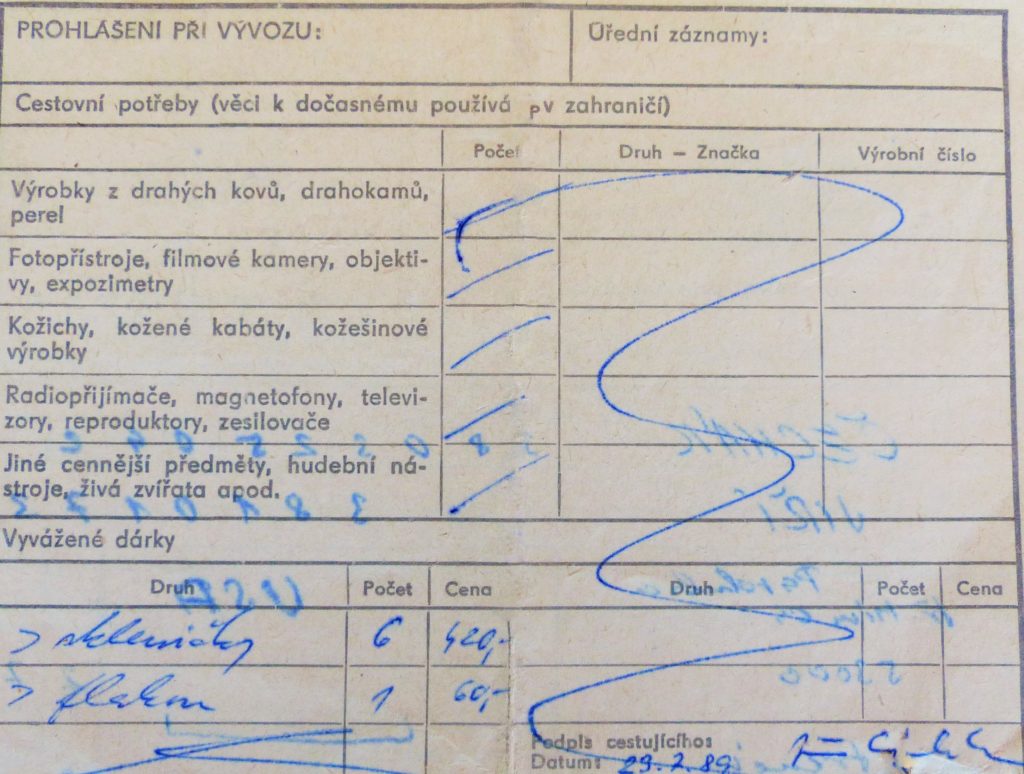 PROHLÁŠENI PŘI VÝVOZU:
Úřední záznamy:
Cestovní potřeby (věci k dočasnému používá p v zahraničí)
Počet Druh – Značka Výrobní číslo
Výrobky z drahých kovů, drahokamů,
perel
Fotopřístroje, filmové kamery, objekti-
vy, expozimetry
Kožichy, kožené kabáty, kožešinové
výrobky
Radiopřijímače, magnetofony, televi-
zory, reproduktory, zesilovače
Jiné cennější předměty, hudební ná-
stroje, živá zvířata apod.
Vyvážené dárky
Druh Počet Cena Druh Počet Cena
skleničky 6 420,-
flakon 1 60,-
Podpis cestujícího:
Datum: 29.7.89